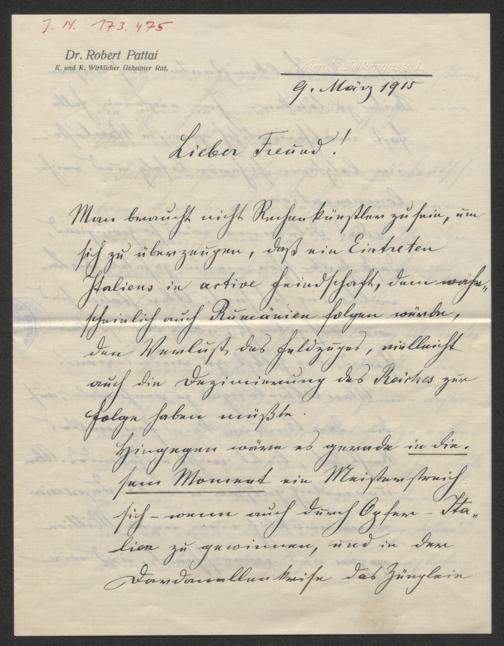 J. N. 173.475
Dr. Robert Pattai
K. und K. Wirklicher Geheimer Rat.
9. März 1915
Lieber Freund!
Man braucht nicht Rechenkünstler zu sein, um
sich zu überzeugen, daß ein Eintreten
Italiens in active Feindschaft, dem wahr-
scheinlich auch Rumänien folgen würde,
den Verlust des Feldzuges, vielleicht
auch die Dezimierung des Reiches zur
Folge haben müßte.
Hingegen wäre es gerade in die-
sem Moment ein Meisterstreich
sich – wenn auch durch Opfer – Ita-
lien zu gewinnen, und in der
Dardanellenkrise das Zünglein